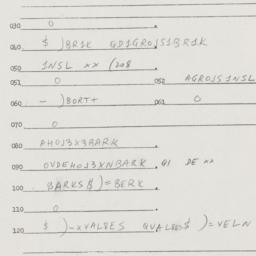 030 0
040 $ )BR1K GD1GROJS1BR1K
050 1NSL xx (208
051 0 052 AGROJS1NSL
060 - )BORT+ 061 0
070 0
080 PHOJ3X3BARK
090 OVDEHOJ3XNBARK . 91 DE xx
100 BARKS$)=BERK
110 0
120 $ )-XVALEES QVALES$ )=VELN